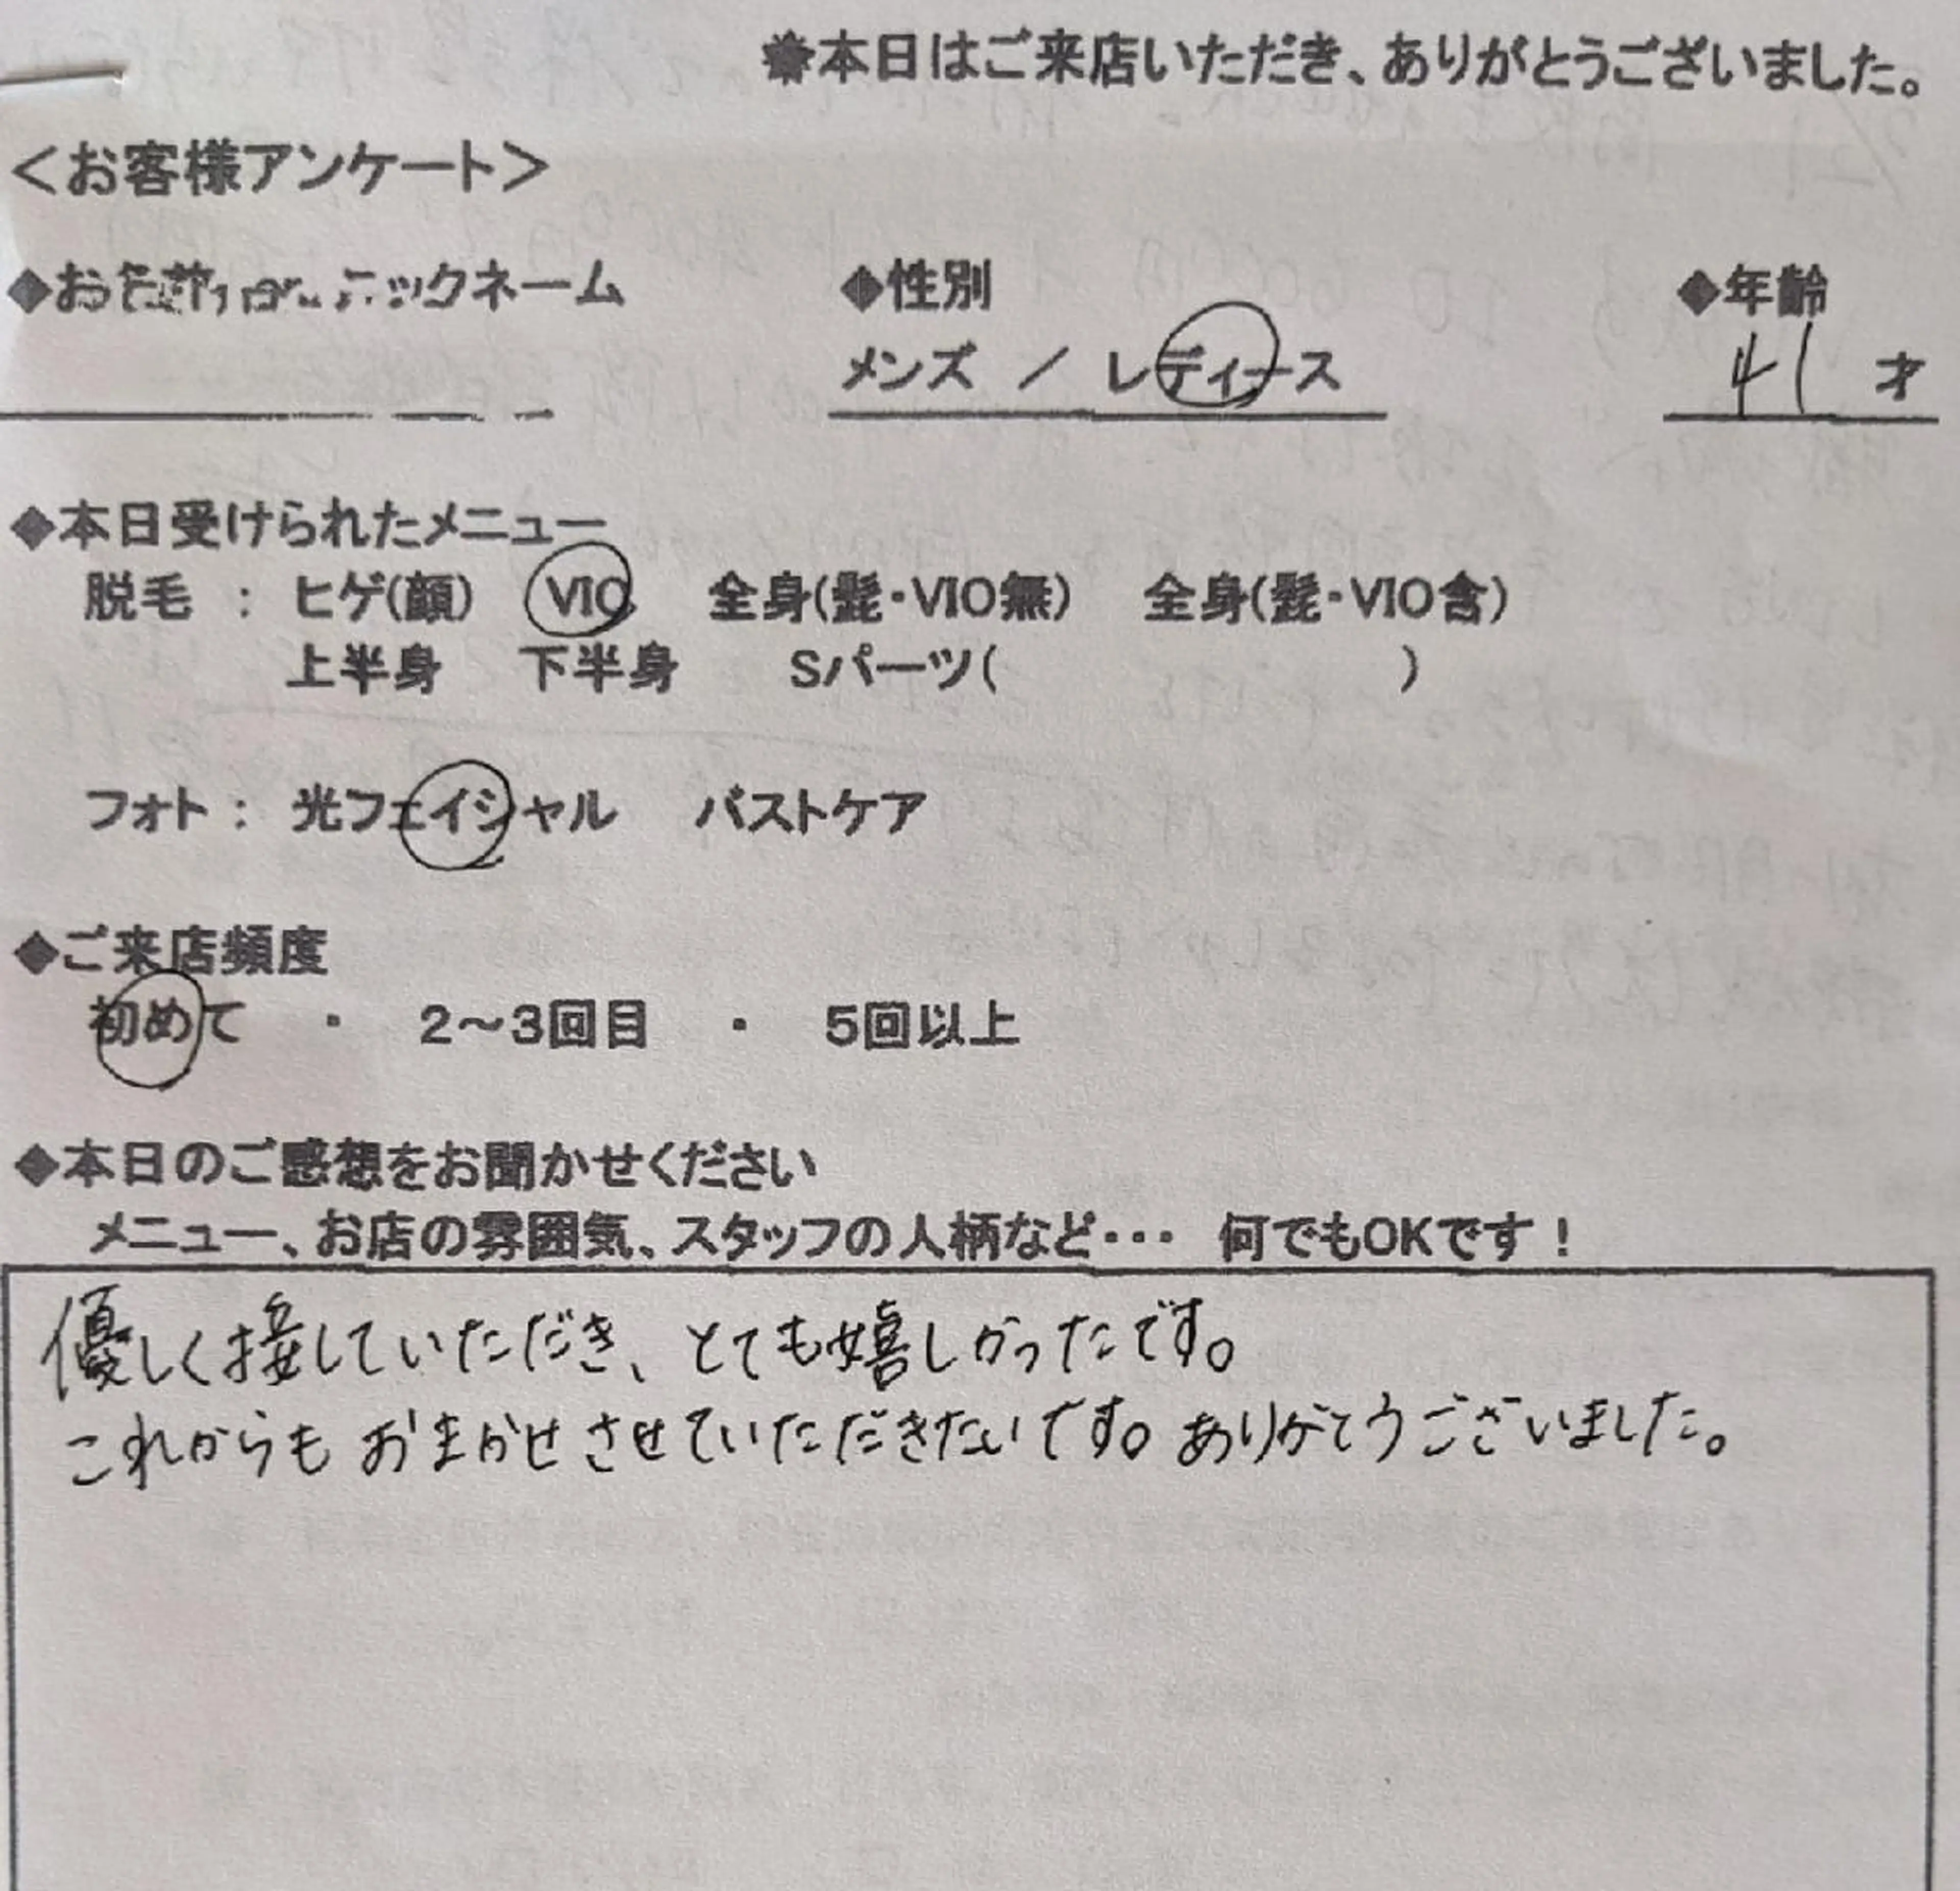 本日はご来店いただき、ありがとうございました。
＜お客様アンケート＞
◆お名前 ニックネーム ◆性別 ◆年齢
メンズ ／ レディース 41 才
◆本日受けられたメニュー
脱毛 ： ヒゲ(顔) VIO 全身(髭・VIO無) 全身(髭・VIO含)
上半身 下半身 Sパーツ( )
フォト： 光フェイシャル バストケア
◆ご来店頻度
初めて ・ 2～3回目 ・ 5回以上
◆本日のご感想をお聞かせください
メニュー、お店の雰囲気、スタッフの人柄など・・・ 何でもOKです！
優しく接していただき、とても嬉しかったです。
これからもおまかせさせていただきたいです。ありがとうございました。